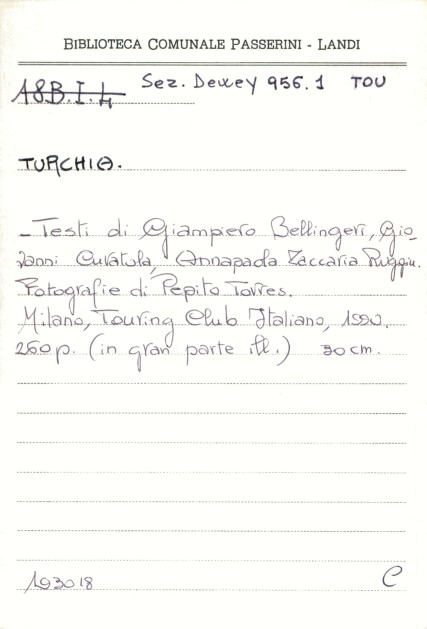 BIBLIOTECA COMUNALE PASSERINI - LANDI
18B.I.4 Sez. Dewey 956.1 TOU
TURCHIA.
- Testi di Giampiero Bellingeri, Gio_
vanni Curatola, Annapaola Zaccaria Ruggiu.
Fotografie di Pepito Torres.
Milano, Touring Club Italiano, 1990.
260 p. (in gran parte ill.) 30 cm.
193018 C